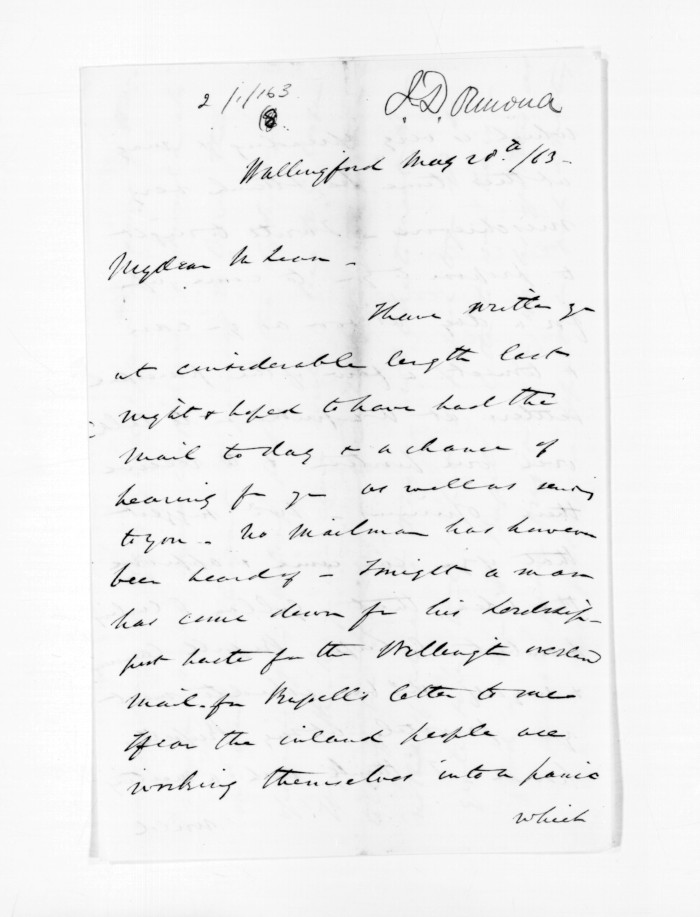 2/1/163
8.
J. D. Ormond
Wallingford May 28th /63 -
My dear McLean -
I have written you
at considerable length last
night & hoped to have had the
mail today & a chance of
hearing fm you as well as sending
to you - No Mailman has however
been heard of - Tonight a man
has come down fm his Lordship
post haste for the Wellington overland
mail. fm Russell's letter to me
I fear the inland people are
working themselves into a panic
which